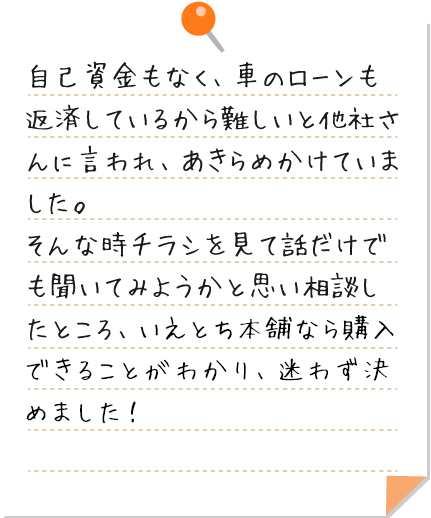 自己資金もなく、車のローンも
返済しているから難しいと他社さ
んに言われ、あきらめかけていま
した。
そんな時チラシを見て話だけで
も聞いてみようかと思い相談し
たところ、いえとち本舗なら購入
できることがわかり、迷わず決
めました！